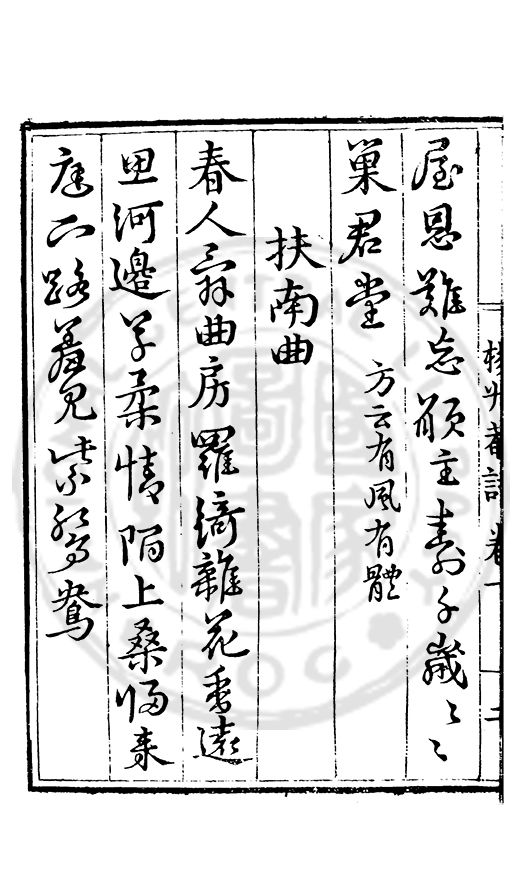 屋恩難忘願主壽千歲〻〻
巢君堂 方云有風有體
扶南曲
春人曲房羅綺雜花香遠
思河邊草柔情陌上桑歸来
庭下路羞見紫鴛鴦
卷一
二